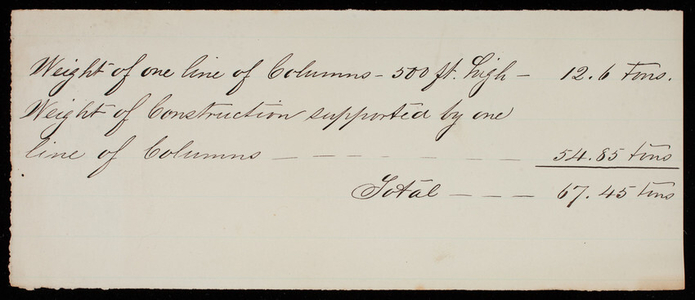 Weight of one line of Columns - 500 ft. high - 12.6 Tons.
Weight of Construction supported by one
line of Columns - - - - - - 54.85 tons
Total - - - 67.45 tons